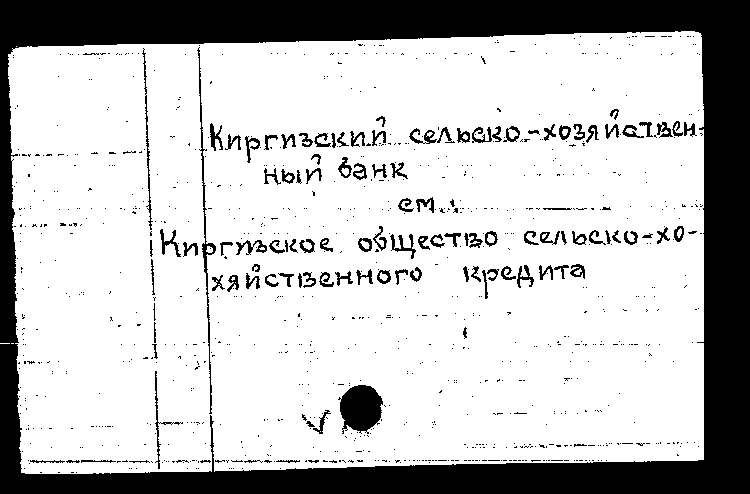 Киргизский сельско-хозяйствен-
ный банк
см.:
Киргизское общество сельско-хо-
хяйственного кредита